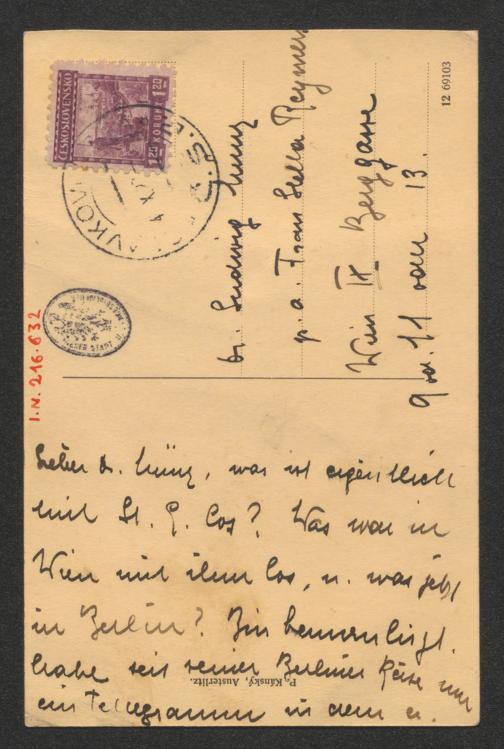 ČESKOSLOVENSKO
1.20 KORUN 1.20
12 69103
Dr. Ludwig Münz
p. a. Frau Stella
Wien IX Berggasse
9 od. 11 oder 13.
I.N. 216.632
Lieber Dr. Münz, was ist eigentlich
mit St. G. los? Was war in
Wien mit ihm los, u. was jetzt
in Berlin? Bin
habe seit seiner Berliner Reise nur
ein Telegramm in dem er
P. Kánský, Austerlitz.